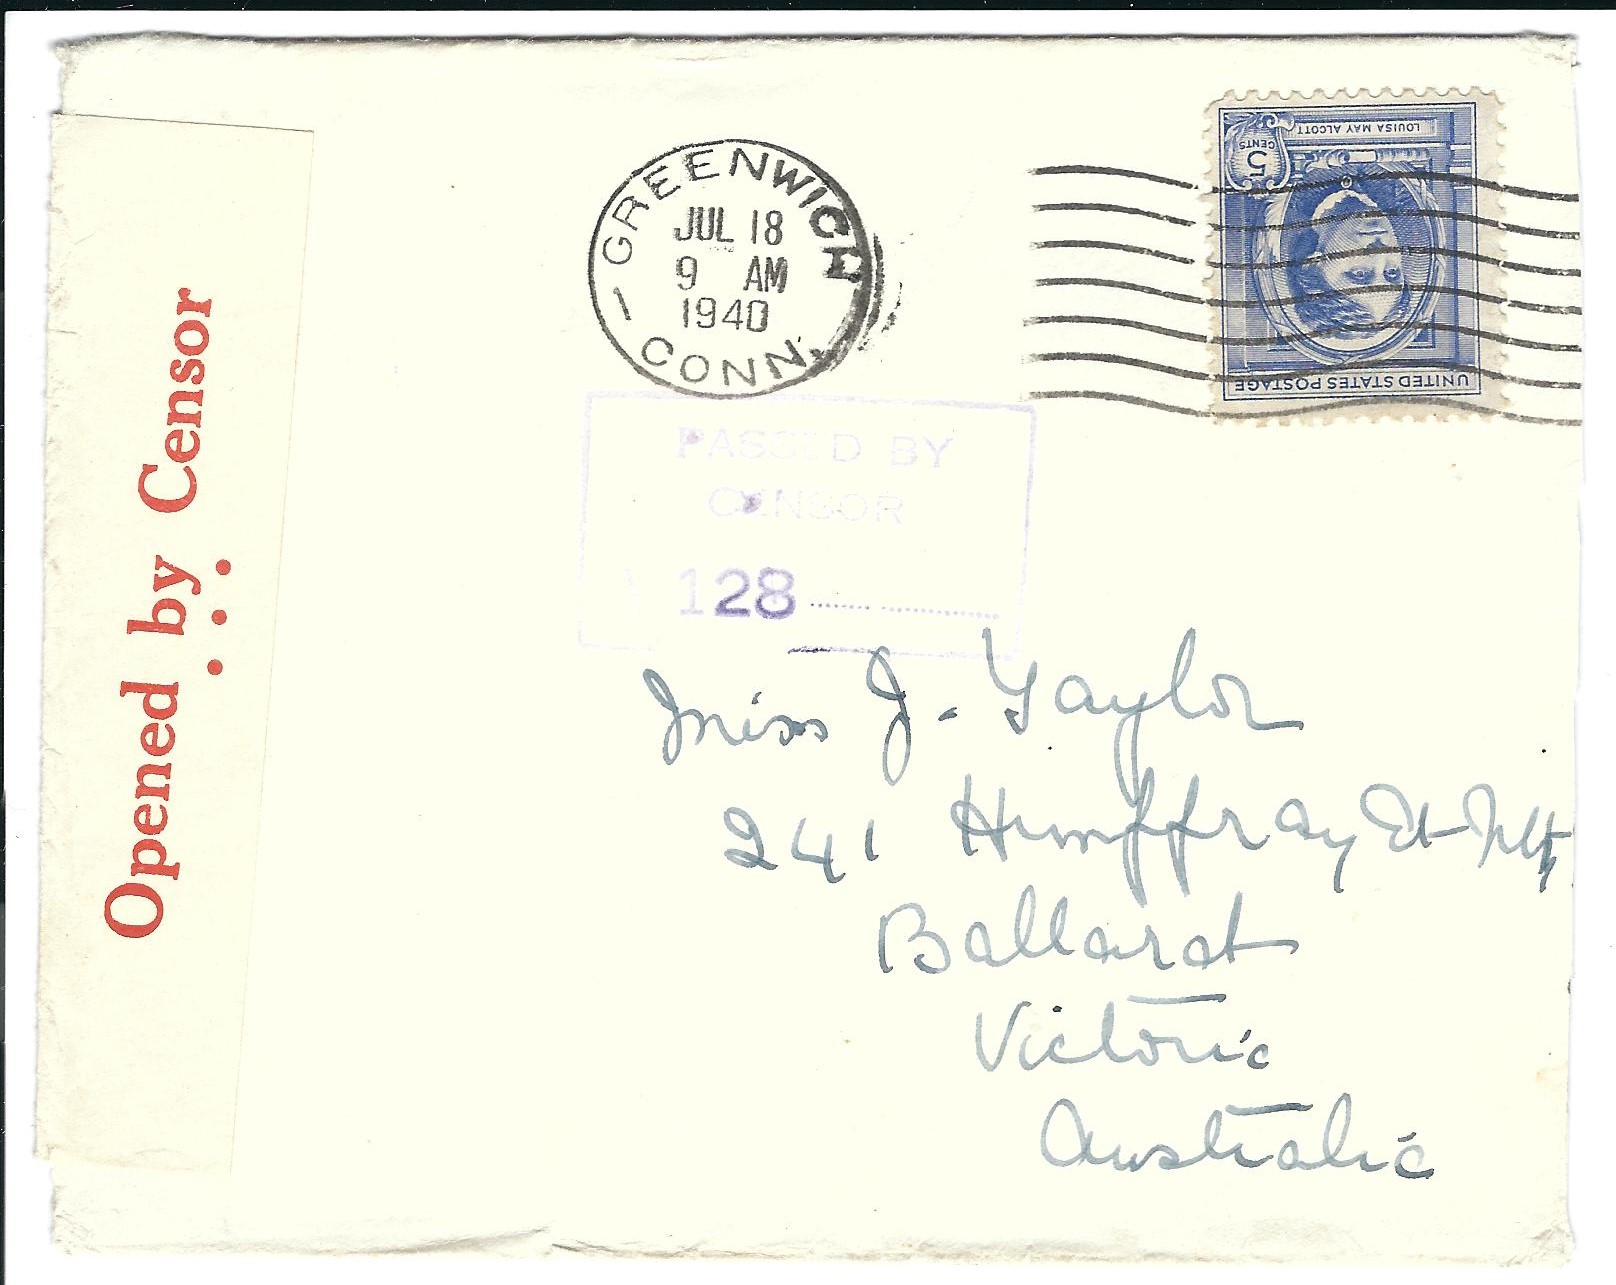 Opened by Censor
GREENWICH
JUL 18
9 AM
1940
1
CONN.
UNITED STATES POSTAGE
LOUISA MAY ALCOTT
5
CENTS
PASSED BY
CENSOR
128
Miss J. Taylor
241 Humffray St Nth
Ballarat
Victoria
Australia